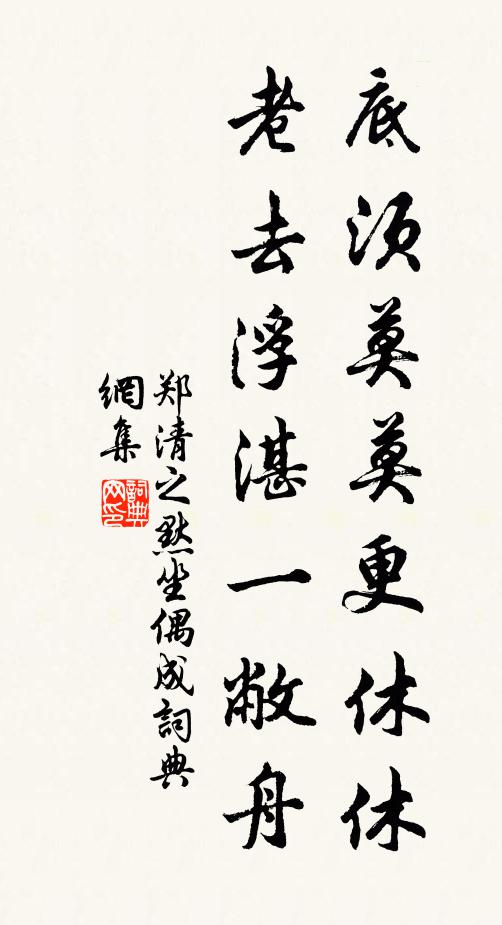 底须莫莫更休休
老去浮湛一敝舟
郑清之默坐偶成詞典
網集
詞典
网印